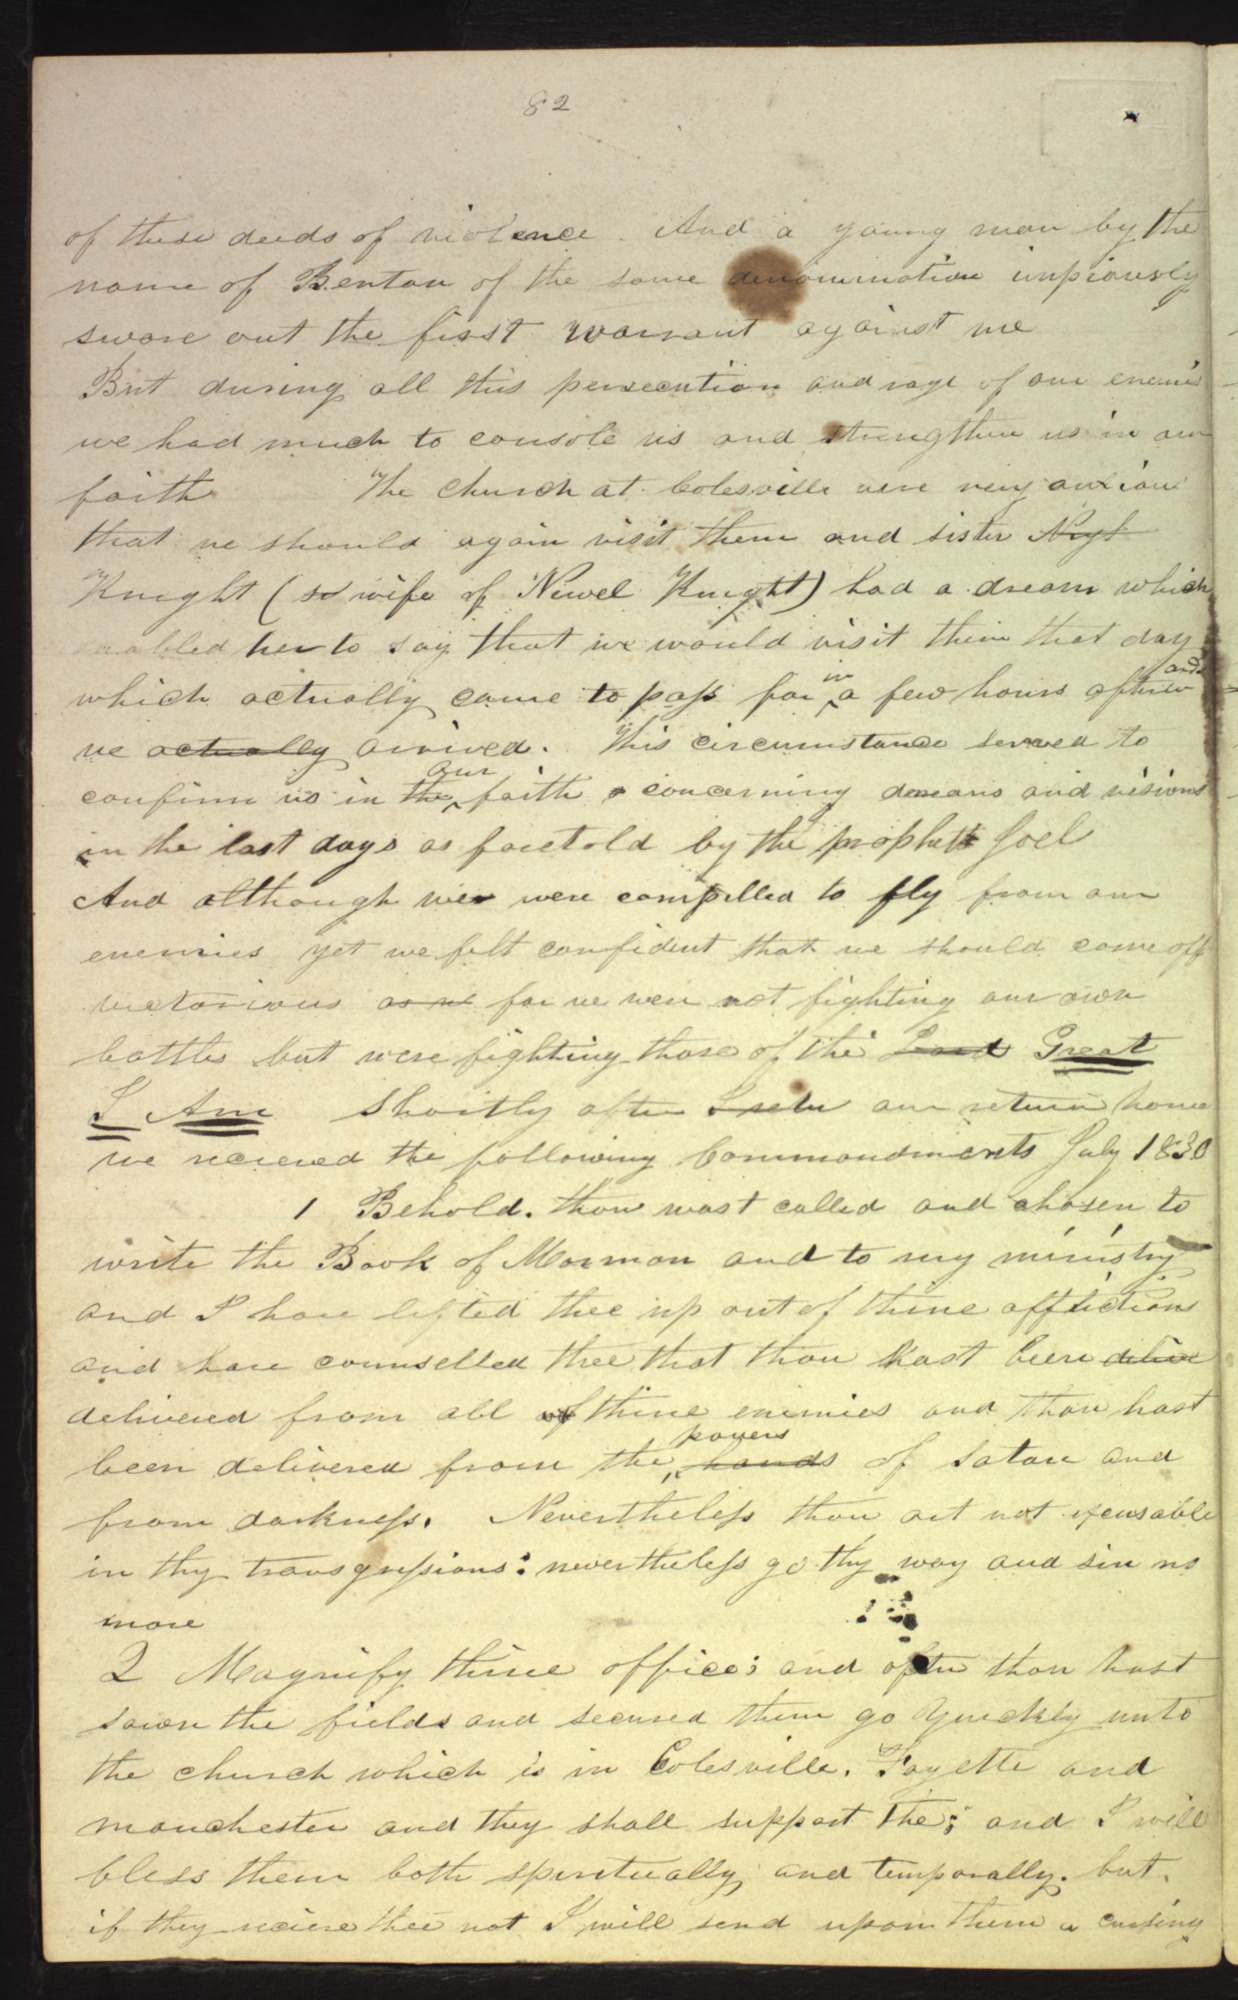 82
of these deeds of violence. And a young man by the
name of Benton of the same denomination impiously
swore out the first warrant against me
But during all this persecution and rage of our enemies
we had much to console us and strengthen us in our
faith The church at Colesville were very anxious
that we should again visit them and sister
Knight (wife of Newel Knight) had a dream which
enabled her to say that we would visit them that day
which actually came to pass for in a few hours afterwards
we actually arrived. This circumstance served to
confirm us in the our faith concerning dreams and visions
in the last days as foretold by the prophet Joel
And although we were compelled to fly from our
enemies yet we felt confident that we should come off
victorious as we for we were not fighting our own
battles but were fighting those of the Lord Great
I Am Shortly after our return home
we recieved the following Commandments July 1830
1 Behold. thou wast called and chosen to
write the Book of Mormon and to my ministry
and I have lifted thee up out of thine afflictions
and have counselled thee that thou hast been deliver
delivered from all of thine enimies and thou hast
been delivered from the powers hands of satan and
from darkness. Nevertheless thou art not excusable
in thy transgressions: nevertheless go thy way and sin no
more
2 Magnify thine office: and after thou hast
sown the fields and secured them go quickly unto
the church which is in Colesville. Fayette and
manchester and they shall support the; and I will
bless them both spiritually and temporally. but.
if they recieve thee not I will send upon them a cursing